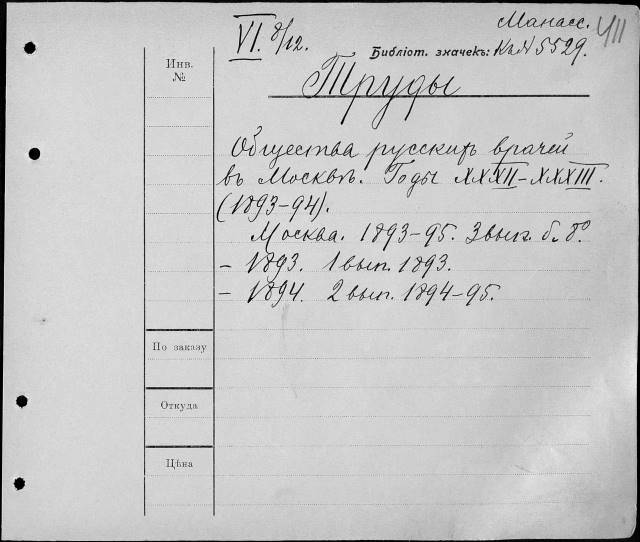 Манасс. 411
VI. 8/12. Библіот. значекъ: Къ № 5529.
Инв.
№
Труды
Общества русскихъ врачей
въ Москвѣ. Годы XXXII–XXXIII.
(1893–94).
Москва. 1893–95. 3 вып. б. 8º.
– 1893. 1 вып. 1893.
– 1894. 2 вып. 1894–95.
По заказу
Откуда
Цѣна